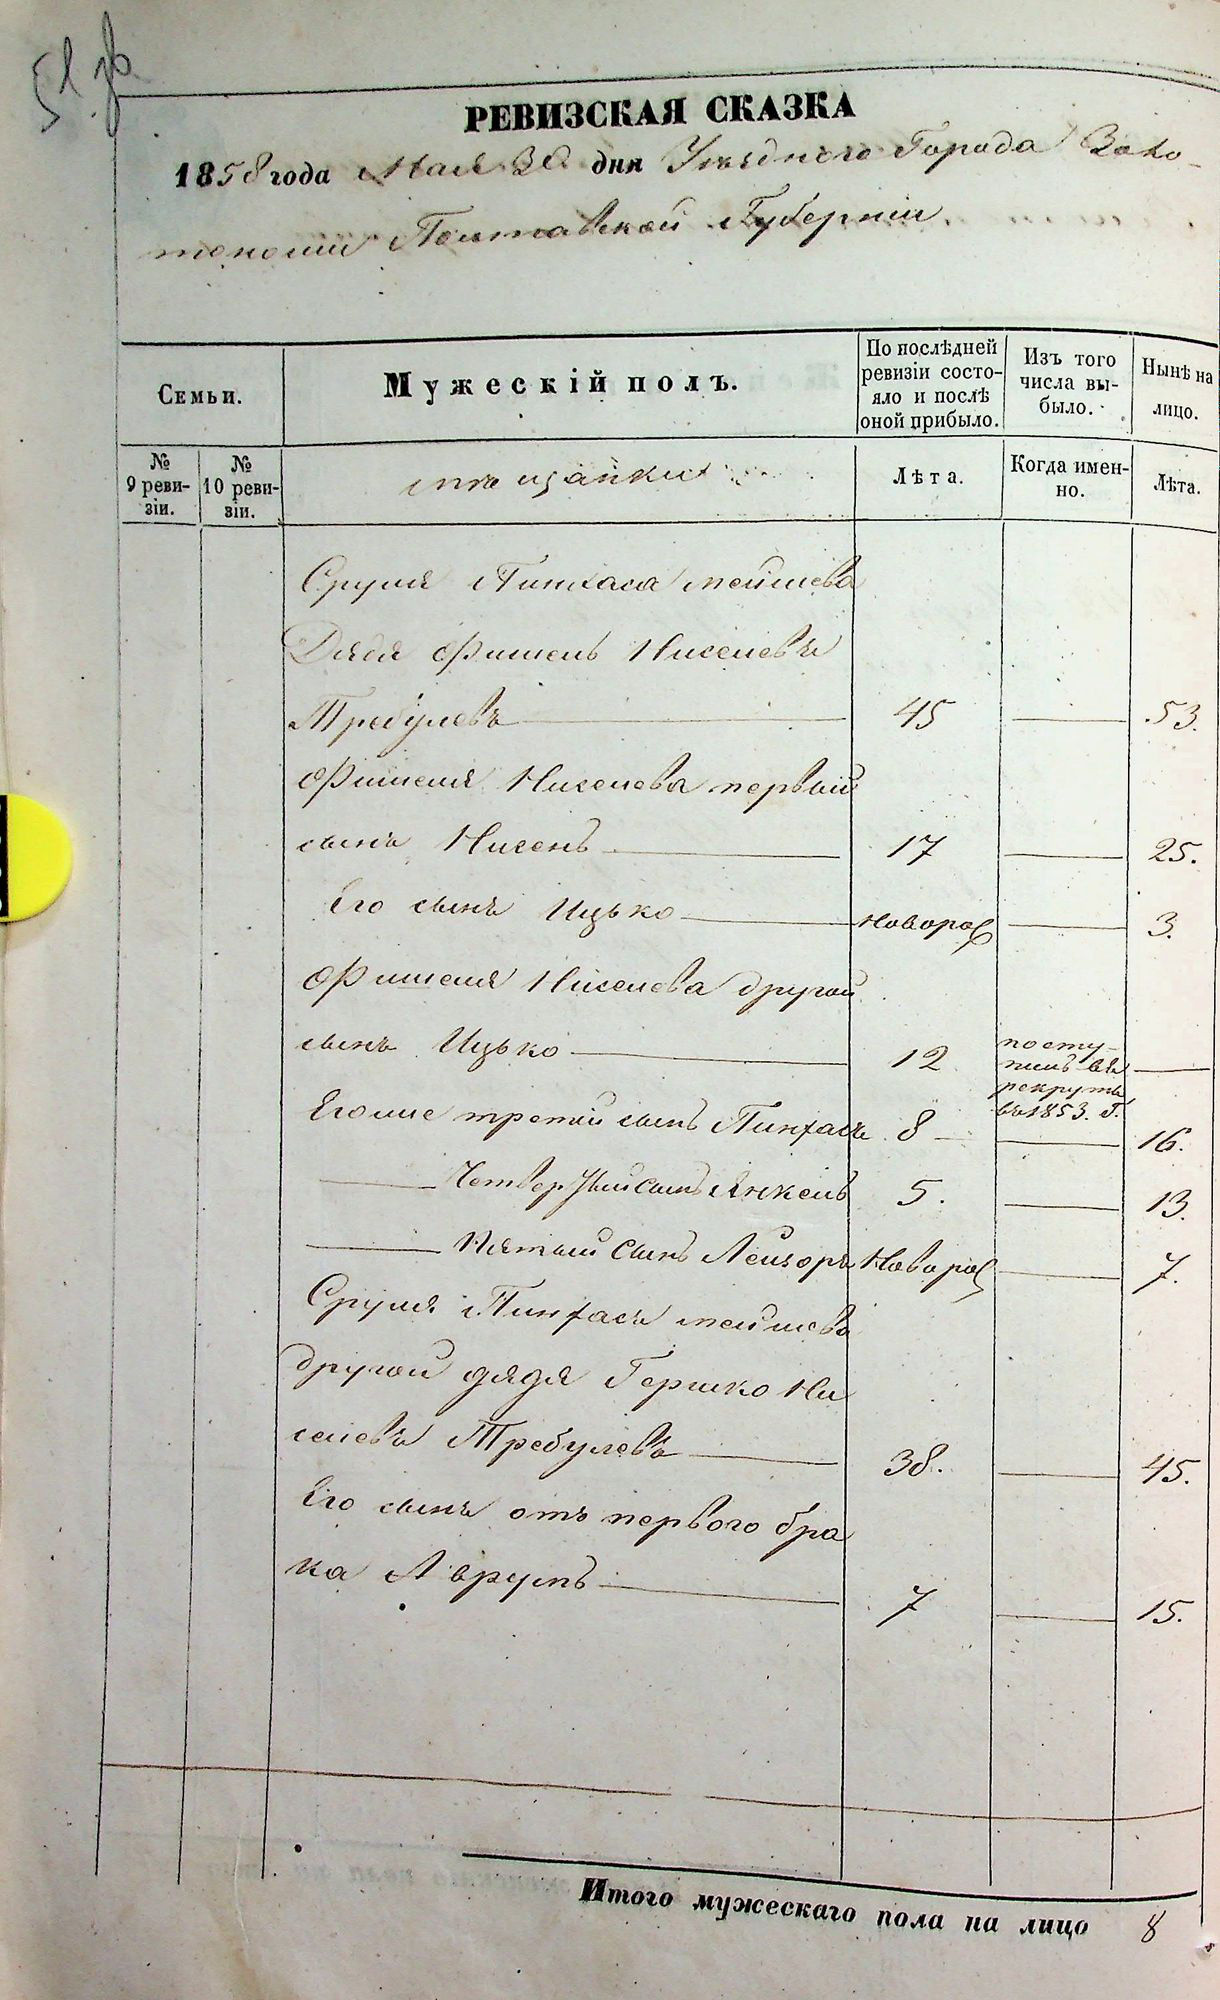 РЕВИЗСКАЯ СКАЗКА
1858 года Мая 30 дня Уезднаго Города Золо-
тоноши Полтавской Губернии
Семьи.
Мужескій полъ.
По послѣдней ревизіи состо-яло и послѣ оной прибыло.
Изъ того числа вы-было.
Нынѣ на лицо.
№ 9 реви-зіи.
№ 10 реви-зіи.
мещанки
Лѣта.
Когда имен-но.
Лѣта.
Сруля Пинхаса Мейшева
Дядя Фишель Ниселевъ
Требулевъ 45 53.
Фишеля Нисенева первый
сынъ Нисенъ 17 25.
Его сынъ Ицько новорож 3.
Фишеля Нисенева другой
сынъ Ицько 12 посту-
пилъ въ
рекруты
въ 1853. г.
Его же третий сынъ Пинхасъ 8 16.
Четвертый сынъ Янкель 5. 13.
Пятый сынъ Лейзоръ Новорож 7.
Сруля Пинхасъ мейшева
другой дядя Гершко Ни
селевъ Требулевъ 38. 45.
Его сынъ отъ первого бра
ка Аврумъ 7 15.
Итого мужескаго пола на лицо 8